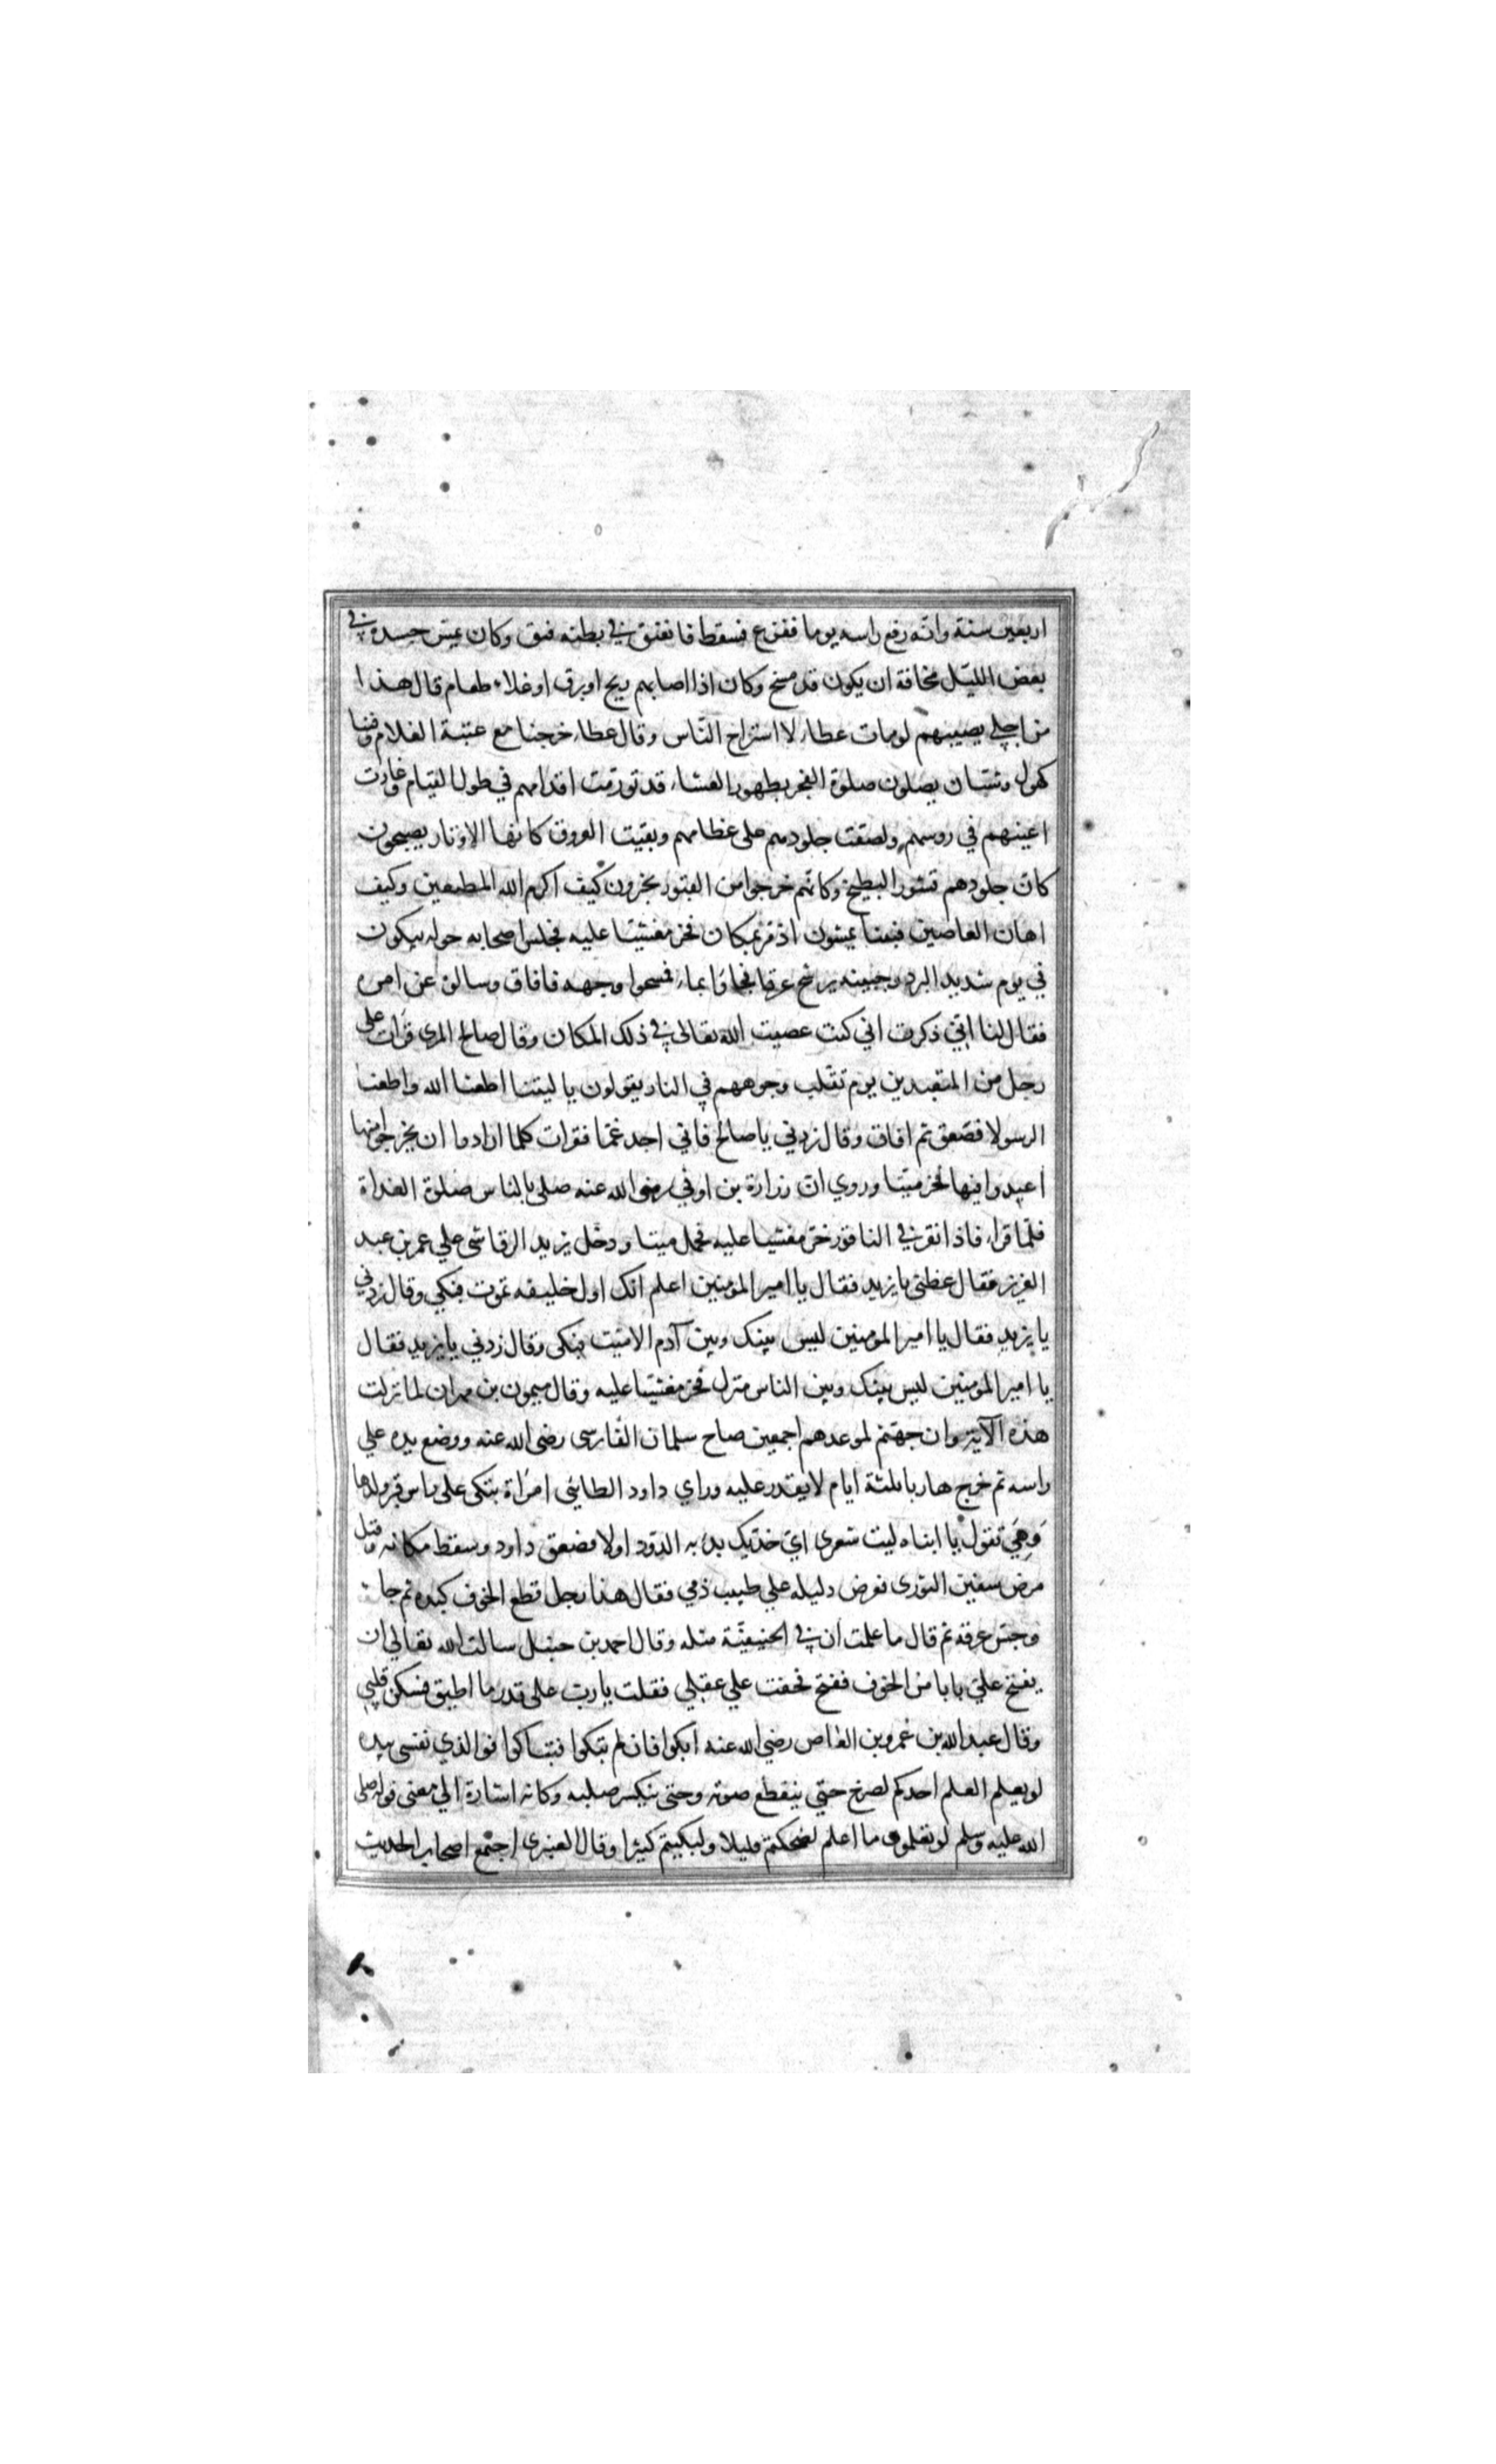 اربعين سنة وانه رفع راسه يوما ففزع فسقط فانفتق في بطنه فتق وكان يمس جسده في
بعض الليل مخافة ان يكون قد مسخ وكان اذا اصابهم ريح او برق او غلاء طعام قال هذا
من اجلي يصيبهم لو مات عطاء لاستراح الناس وقال عطاء خرجنا مع عتبة الغلام وفينا
كهول وشبان يصلون صلوة الفجر بطهور العشاء قد تورمت اقدامهم في طول القيام وغارت
اعينهم في روسهم ولصقت جلودهم على عظامهم وبقيت العروق كانها الاوتار يصبحون
كان جلودهم قشور البطيخ وكانهم خرجوا من القبور يخبرون كيف اكرم الله المطيعين وكيف
اهان العاصين فبينا يمشون اذ مر بمكان فخر مغشيا عليه فجلس اصحابه حوله يبكون
في يوم شديد البرد وجبينه يرشح عرقا فجاؤا بماء فمسحوا وجهه فافاق وسالوه عن امره
فقال لنا اني ذكرت اني كنت عصيت الله تعالى في ذلك المكان وقال صالح المري قرات على
رجل من المتعبدين يوم تقلب وجوههم في النار يقولون يا ليتنا اطعنا الله واطعنا
الرسولا فصعق ثم افاق وقال زدني يا صالح فاني اجد غما فقرات كلما ارادوا ان يخرجوا منها
اعيدوا فيها فخر ميتا وروي ان زرارة بن اوفي رضي الله عنه صلى بالناس صلوة الغداة
فلما قراء فاذا نقر في الناقور خر مغشيا عليه فحمل ميتا ودخل يزيد الرقاشي علي عمر بن عبد
العزيز فقال عظني يا يزيد فقال يا امير المؤمنين اعلم انك اول خليفه تموت فبكي وقال زدني
يا يزيد فقال يا امير المومنين ليس بينك وبين آدم الا ميت فبكى وقال زدني يا يزيد فقال
يا امير المومنين ليس بينك وبين الناس منزل فخر مغشيا عليه وقال ميمون بن مهران لما نزلت
هذه الآية وان جهنم لموعدهم اجمعين صاح سلمان الفارسي رضي الله عنه ووضع يده علي
راسه ثم خرج هاربا ثلثة ايام لا يقدر عليه وراي داود الطائي امراة تبكى على راس قبر ولدها
وهي تقول يا ابناه ليت شعرى اي خديك بدء به الدود اولا فصعق داود وسقط مكانه وقيل
مرض سفين الثورى فعرض دليله علي طبيب ذمي فقال هذا رجل قطع الخوف كبده ثم جاء
وجس عرقه ثم قال ما علمت ان في الحنيفية مثله وقال احمد بن حنبل سالت الله تعالي ان
يفتح علي بابا من الخوف ففتح فخفت علي عقلي فقلت يا رب على قدر ما اطيق فسكن قلبي
وقال عبد الله بن عمرو بن العاص رضي الله عنه ابكوا فان لم تبكوا فتباكوا فو الذي نفسي بيده
لو يعلم العلم احدكم لصرخ حتي ينقطع صوته وحتى ينكسر صلبه وكانه اشارة الي معنى قوله صلى
الله عليه وسلم لو تعلمون ما اعلم لضحكتم قليلا ولبكيتم كثيرا وقال العنبرى اجتمع اصحاب الحديث